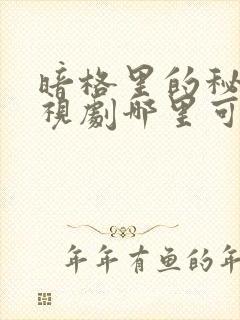 暗格里的秘
視劇哪里可
年年有鱼的年